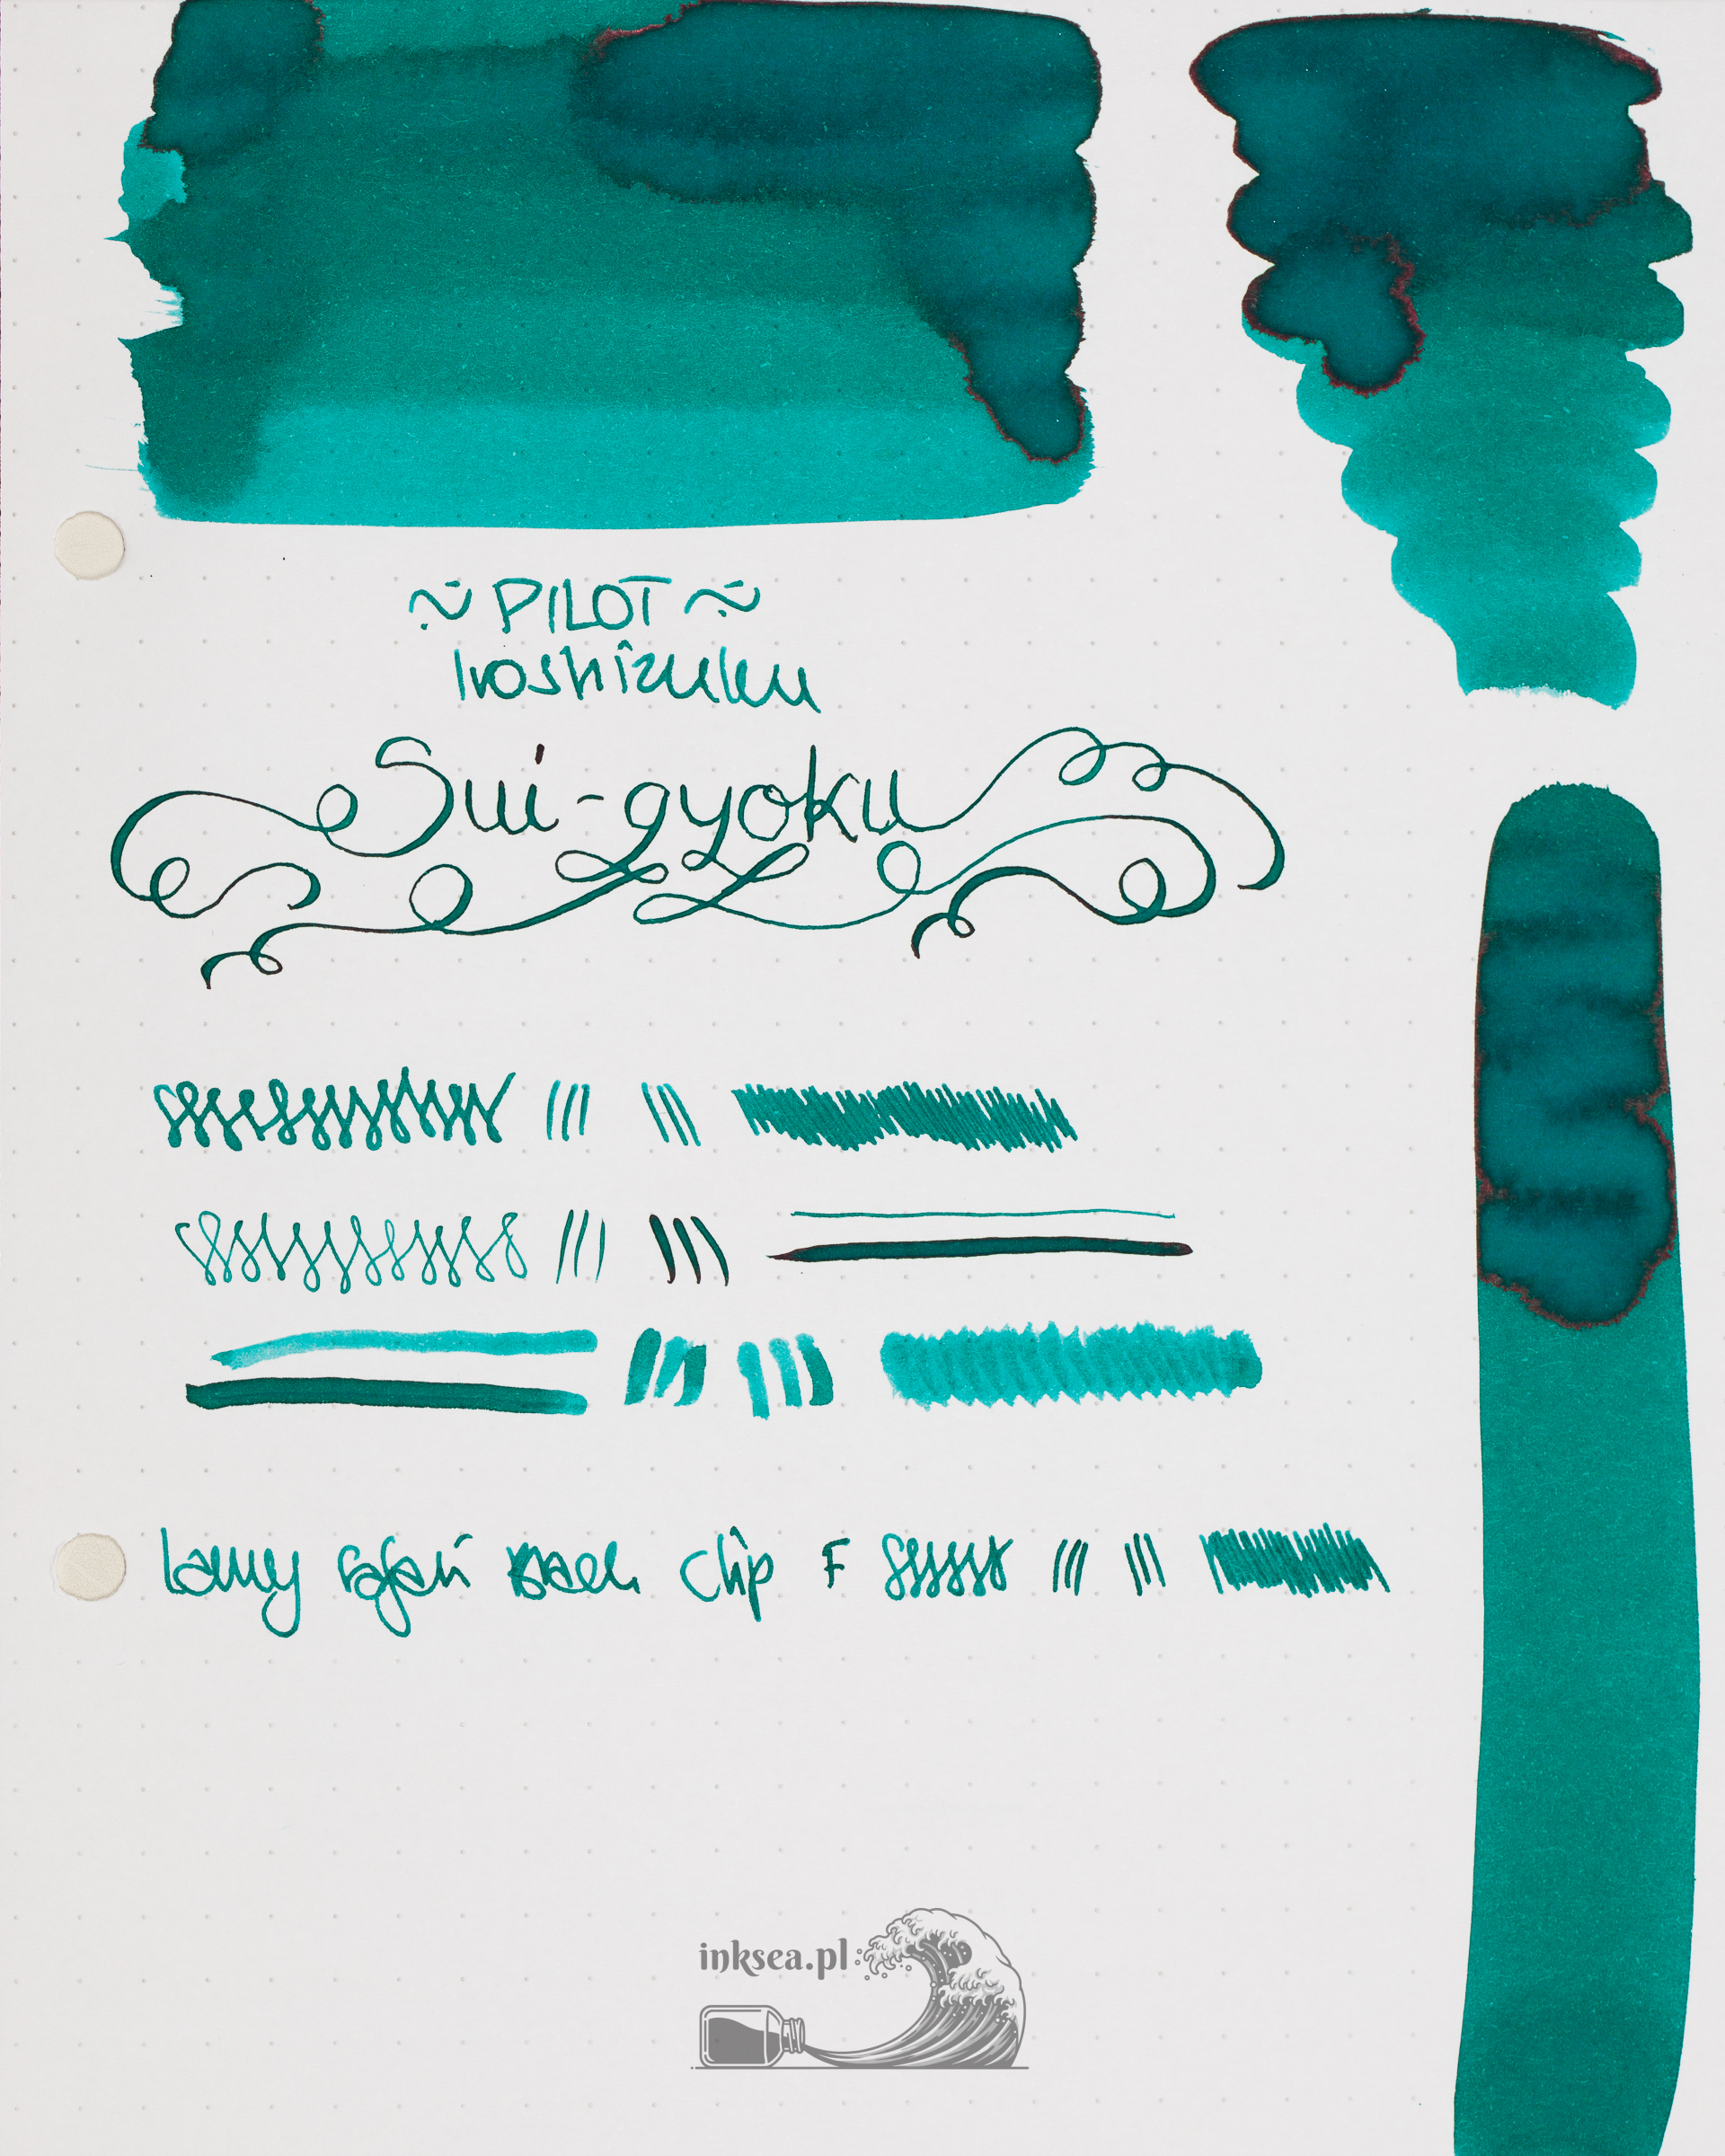 ~ PILOT ~
Iroshizuku
Sui-gyoku
Lamy Safari black clip F
inksea.pl